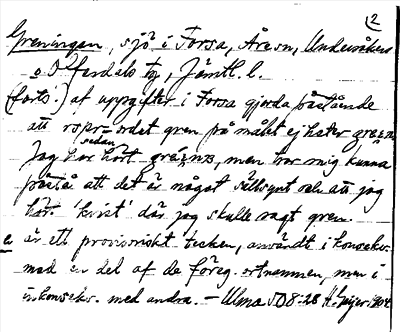 2
Greningen, sjö i Forsa, Åresn, Undersåkers
o Offerdals tg, Jämtl. l.
(forts.) af uppgifter i Forsa gjorda påstående
att ordet gren på målet ej heter
Jag har sedan hört men tror mig kunna
påstå att det är något sällsynt och att jag
hör 'kvist' där jag skulle sagt gren.
e är ett provisoriskt tecken, användt i konsekv.
med en del af de föreg. ortnamnen, men i
inkonsekv. med andra. – Ulma 508:28 H. Geijer 1902